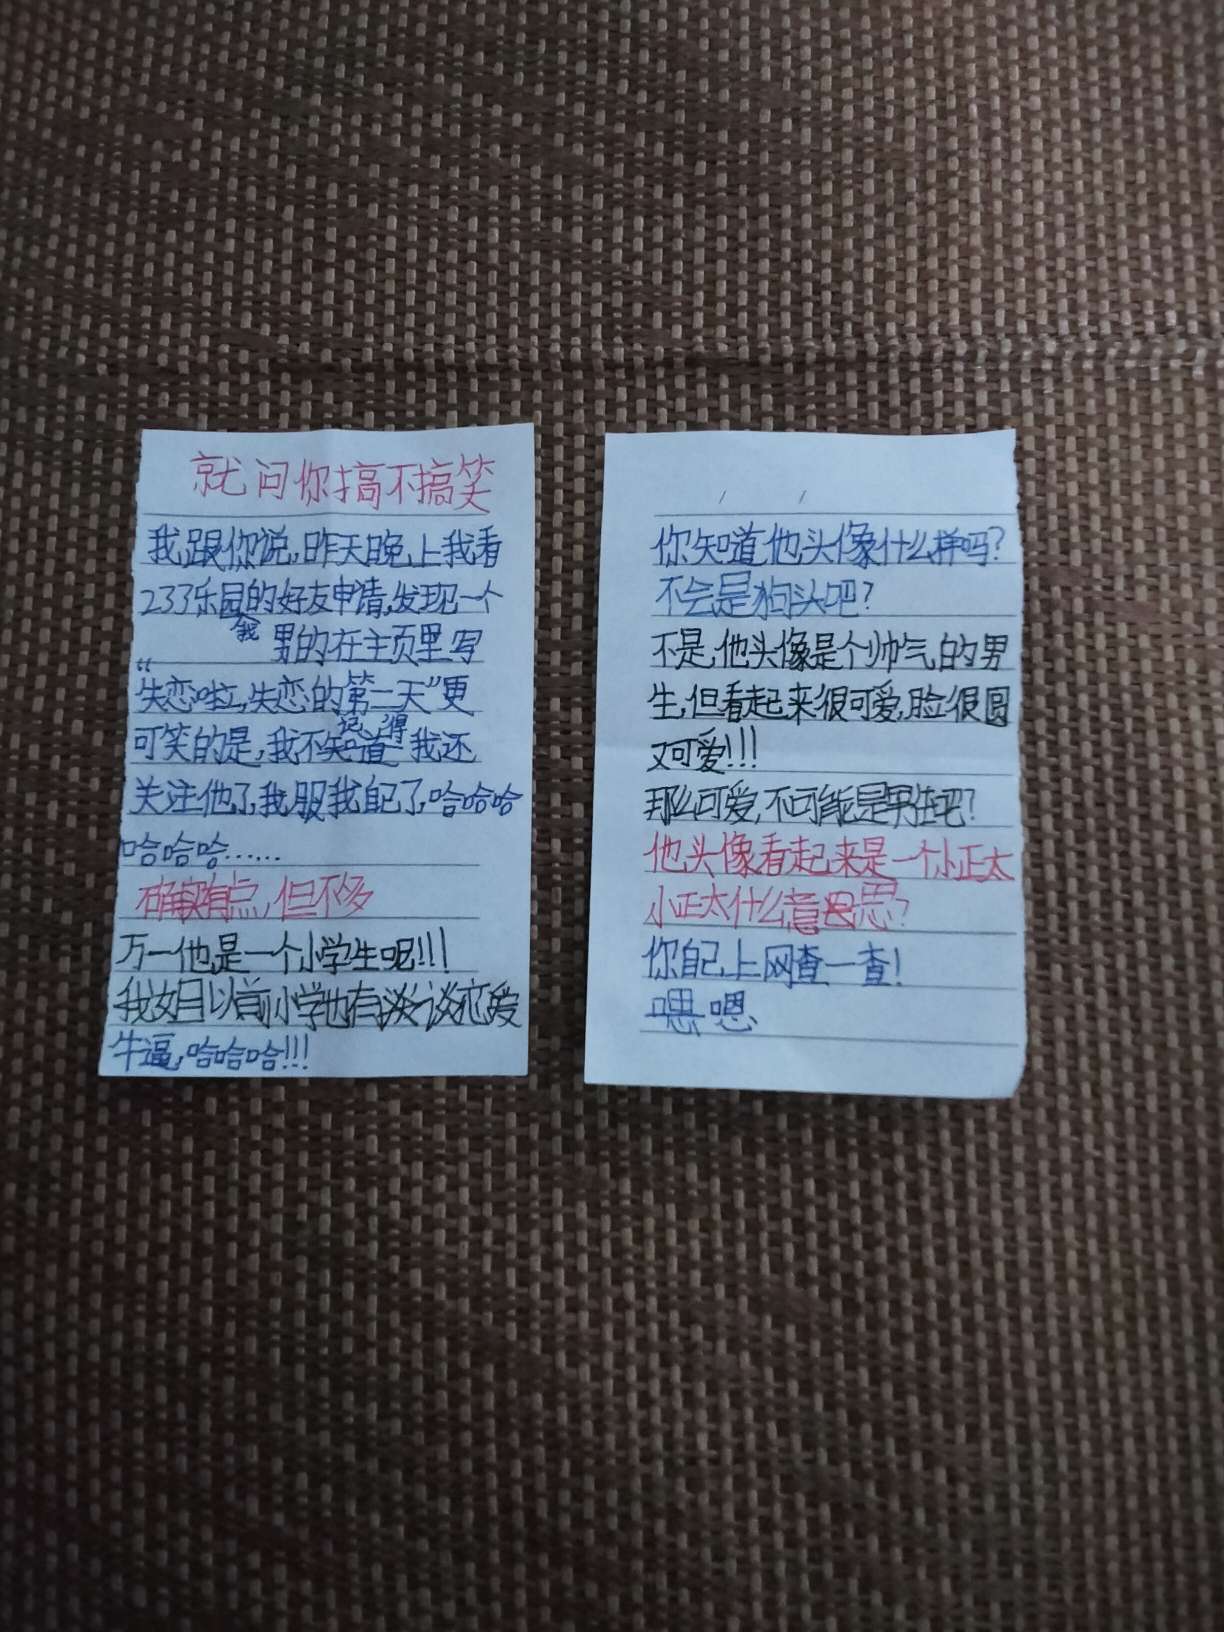 就问你搞不搞笑
我跟你说,昨天晚上我看
233乐园的好友申请,发现一个
我
男的在主页里写
“失恋啦,失恋的第一天”更
可笑的是,我不知道我还
记得
关注他了我服我自己了哈哈哈
哈哈哈……
确实有点,但不多
万一他是一个小学生呢!!!
我姐以前小学也有谈恋爱
牛逼,哈哈哈!!!
你知道他头像什么样吗?
不会是狗头吧?
不是,他头像是个帅气的男
生,但看起来很可爱,脸很圆
又可爱!!!
那么可爱,不可能是男生吧?
他头像看起来是一个小正太
小正太什么意思?
你自己上网查一查!
嗯嗯